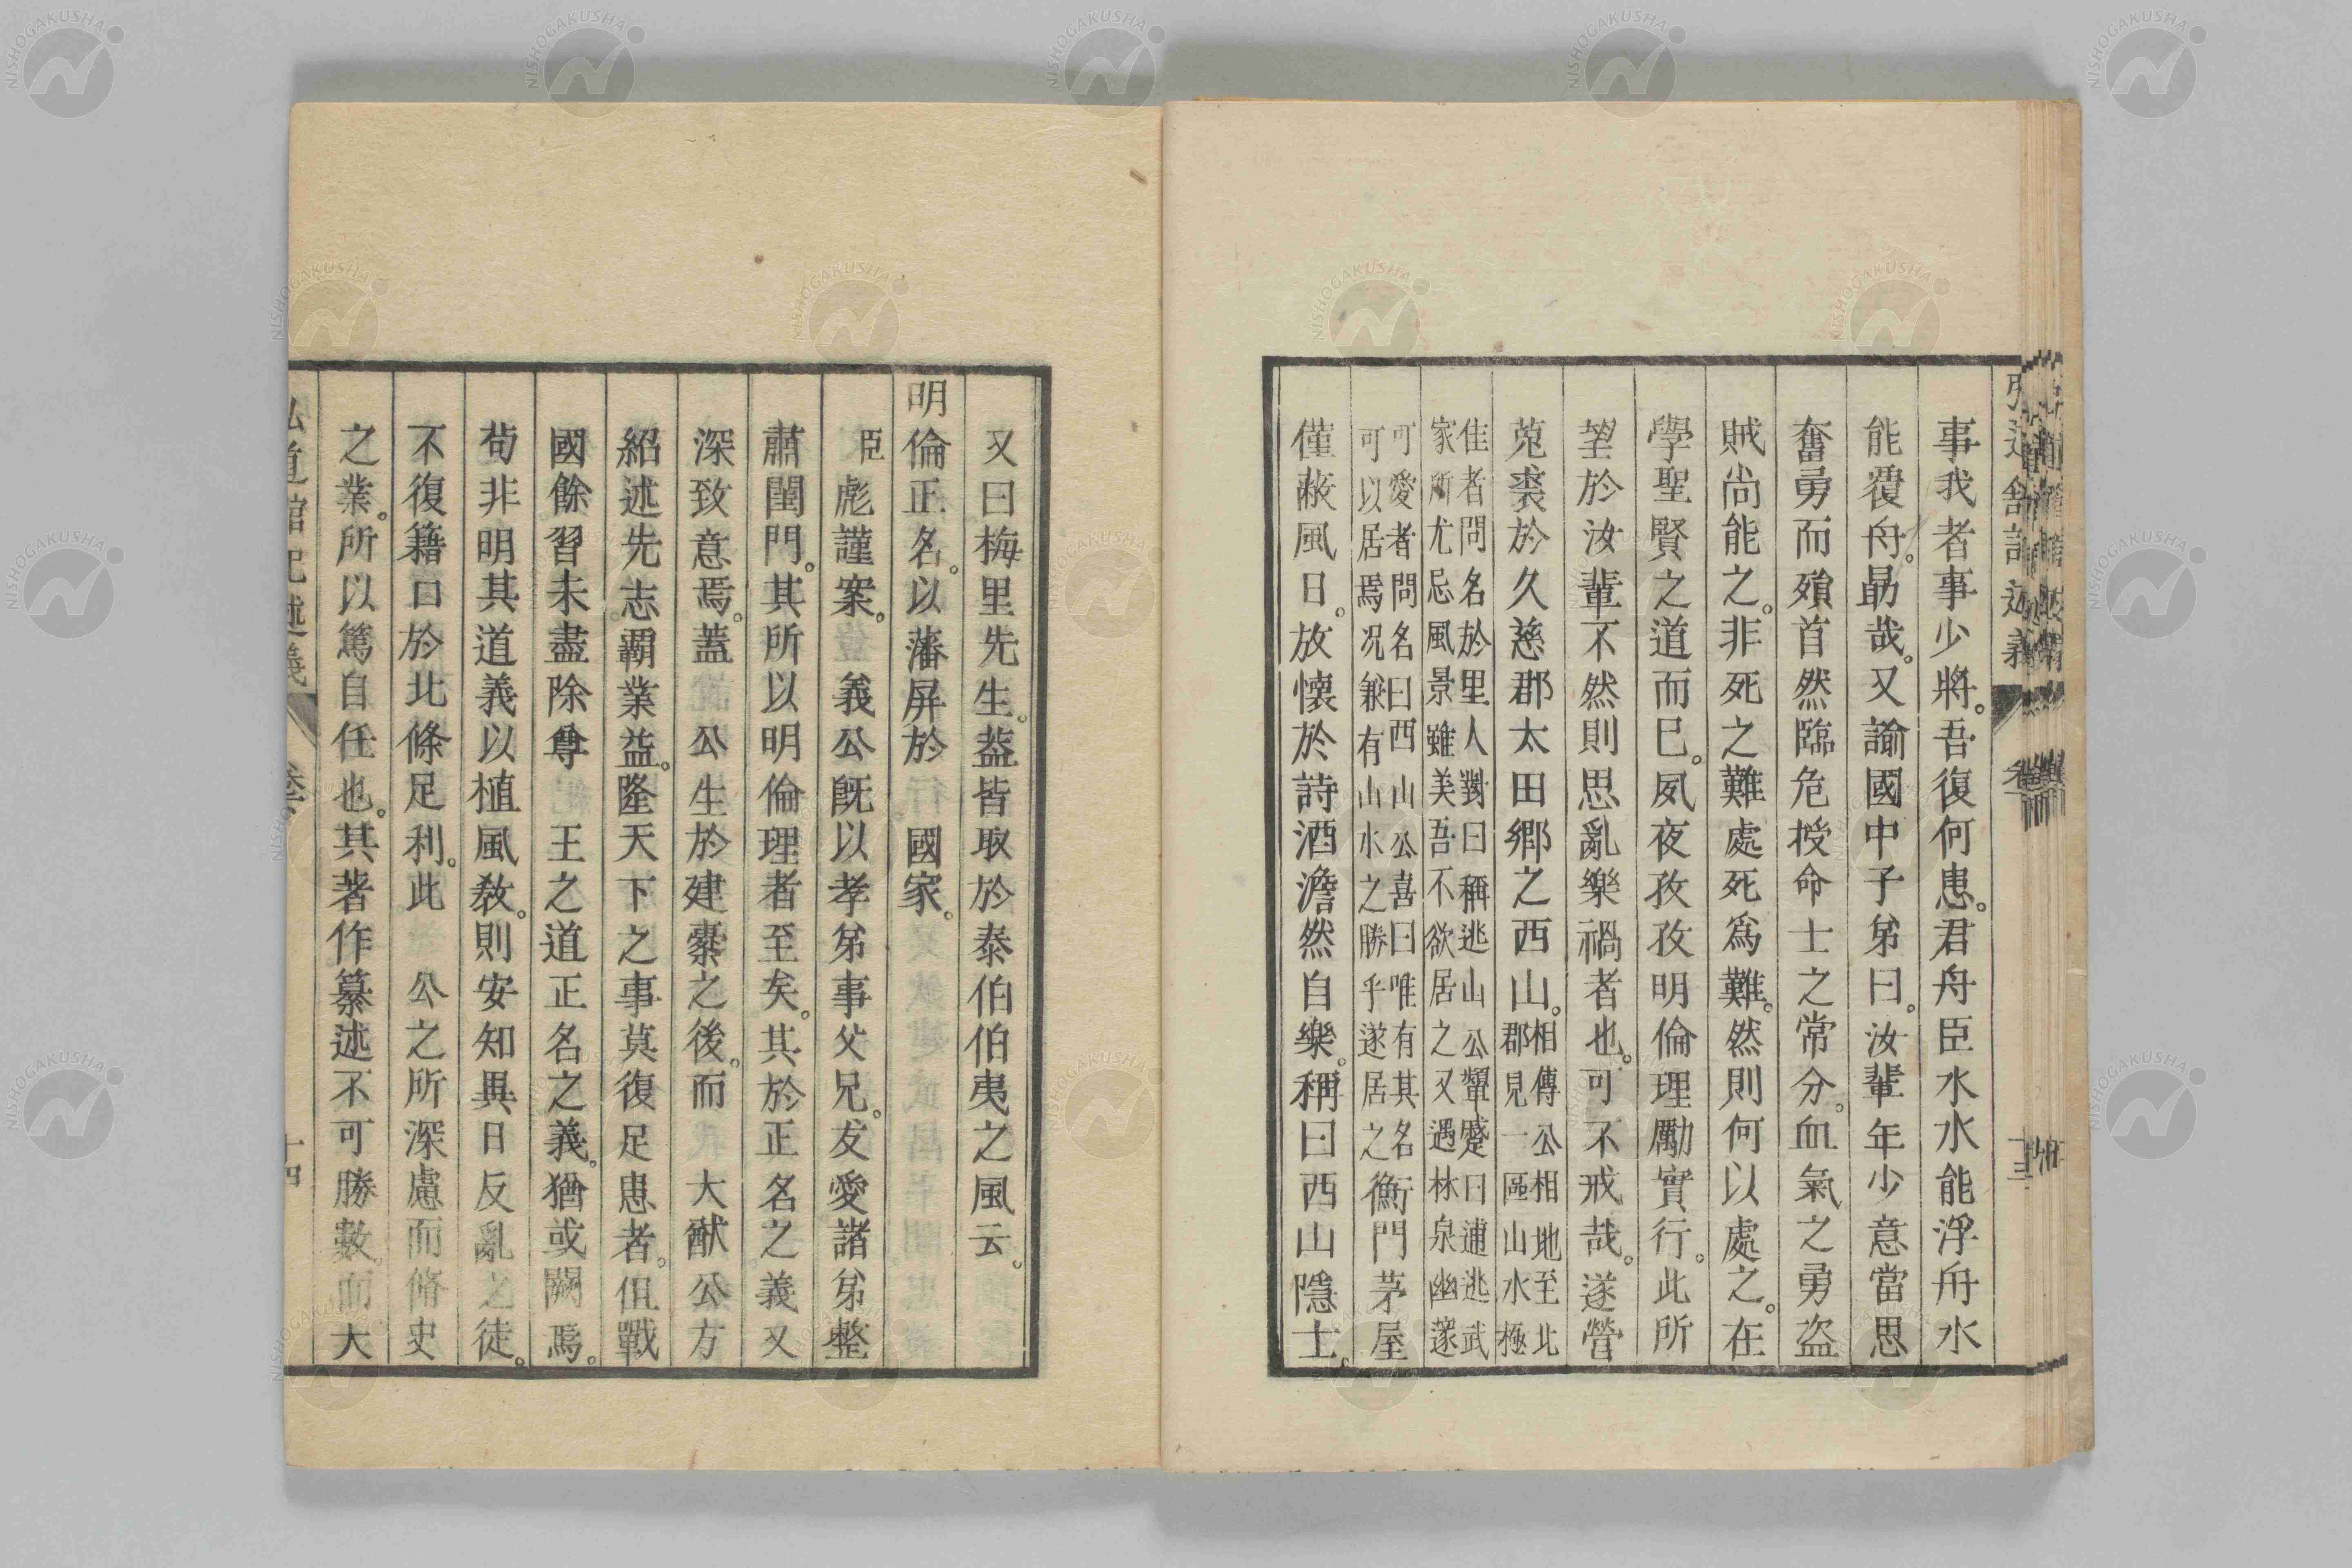 事我者事少將。吾復何患。君舟臣水水能浮舟水
能覆舟。勗哉。又諭國中子弟曰。汝輩年少意當思
奮勇而殞首然臨危授命士之常分。血氣之勇盜
賊尚能之。非死之難處死爲難。然則何以處之。在
學聖賢之道而已。夙夜孜孜明倫理勵實行。此所
望於汝輩不然則思亂樂禍者也。可不戒哉。遂營
菟裘於久慈郡太田鄉之西山。相傳公相地至北
郡見一區山水極
佳者問名於里人對曰稱逃山公顰蹙曰逋逃武
家所尤忌風景雖美吾不欲居之又過林泉幽邃
可愛者問名曰西山公喜曰唯有其名
可以居焉况兼有山水之勝乎遂居之衡門茅屋
僅蔽風日。放懷於詩酒澹然自樂。稱曰西山隱士。
又曰梅里先生。蓋皆取於泰伯伯夷之風云。
明倫正名。以藩屏於 國家。
臣彪謹案。義公旣以孝弟事父兄。友愛諸弟整
肅閨門。其所以明倫理者至矣。其於正名之義又
深致意焉。蓋 公生於建櫜之後。而 大猷公方
紹述先志。霸業益隆天下之事莫復足患者。但戰
國餘習未盡除尊 王之道正名之義。猶或闕焉。
苟非明其道義以植風敎。則安知異日反亂之徒。
不復籍口於北條足利。此 公之所深慮而脩史
之業。所以篤自任也。其著作纂述不可勝數。而大
弘道館記述義 卷下 十四